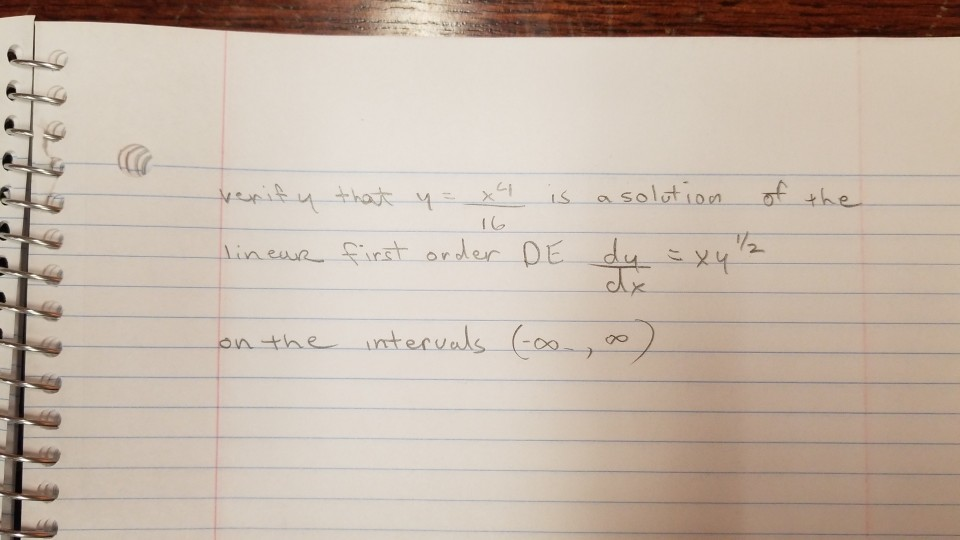 verify that y = x^4/16 is a solution of the
linear first order DE dy/dx = xy^1/2
on the intervals (-∞, ∞)